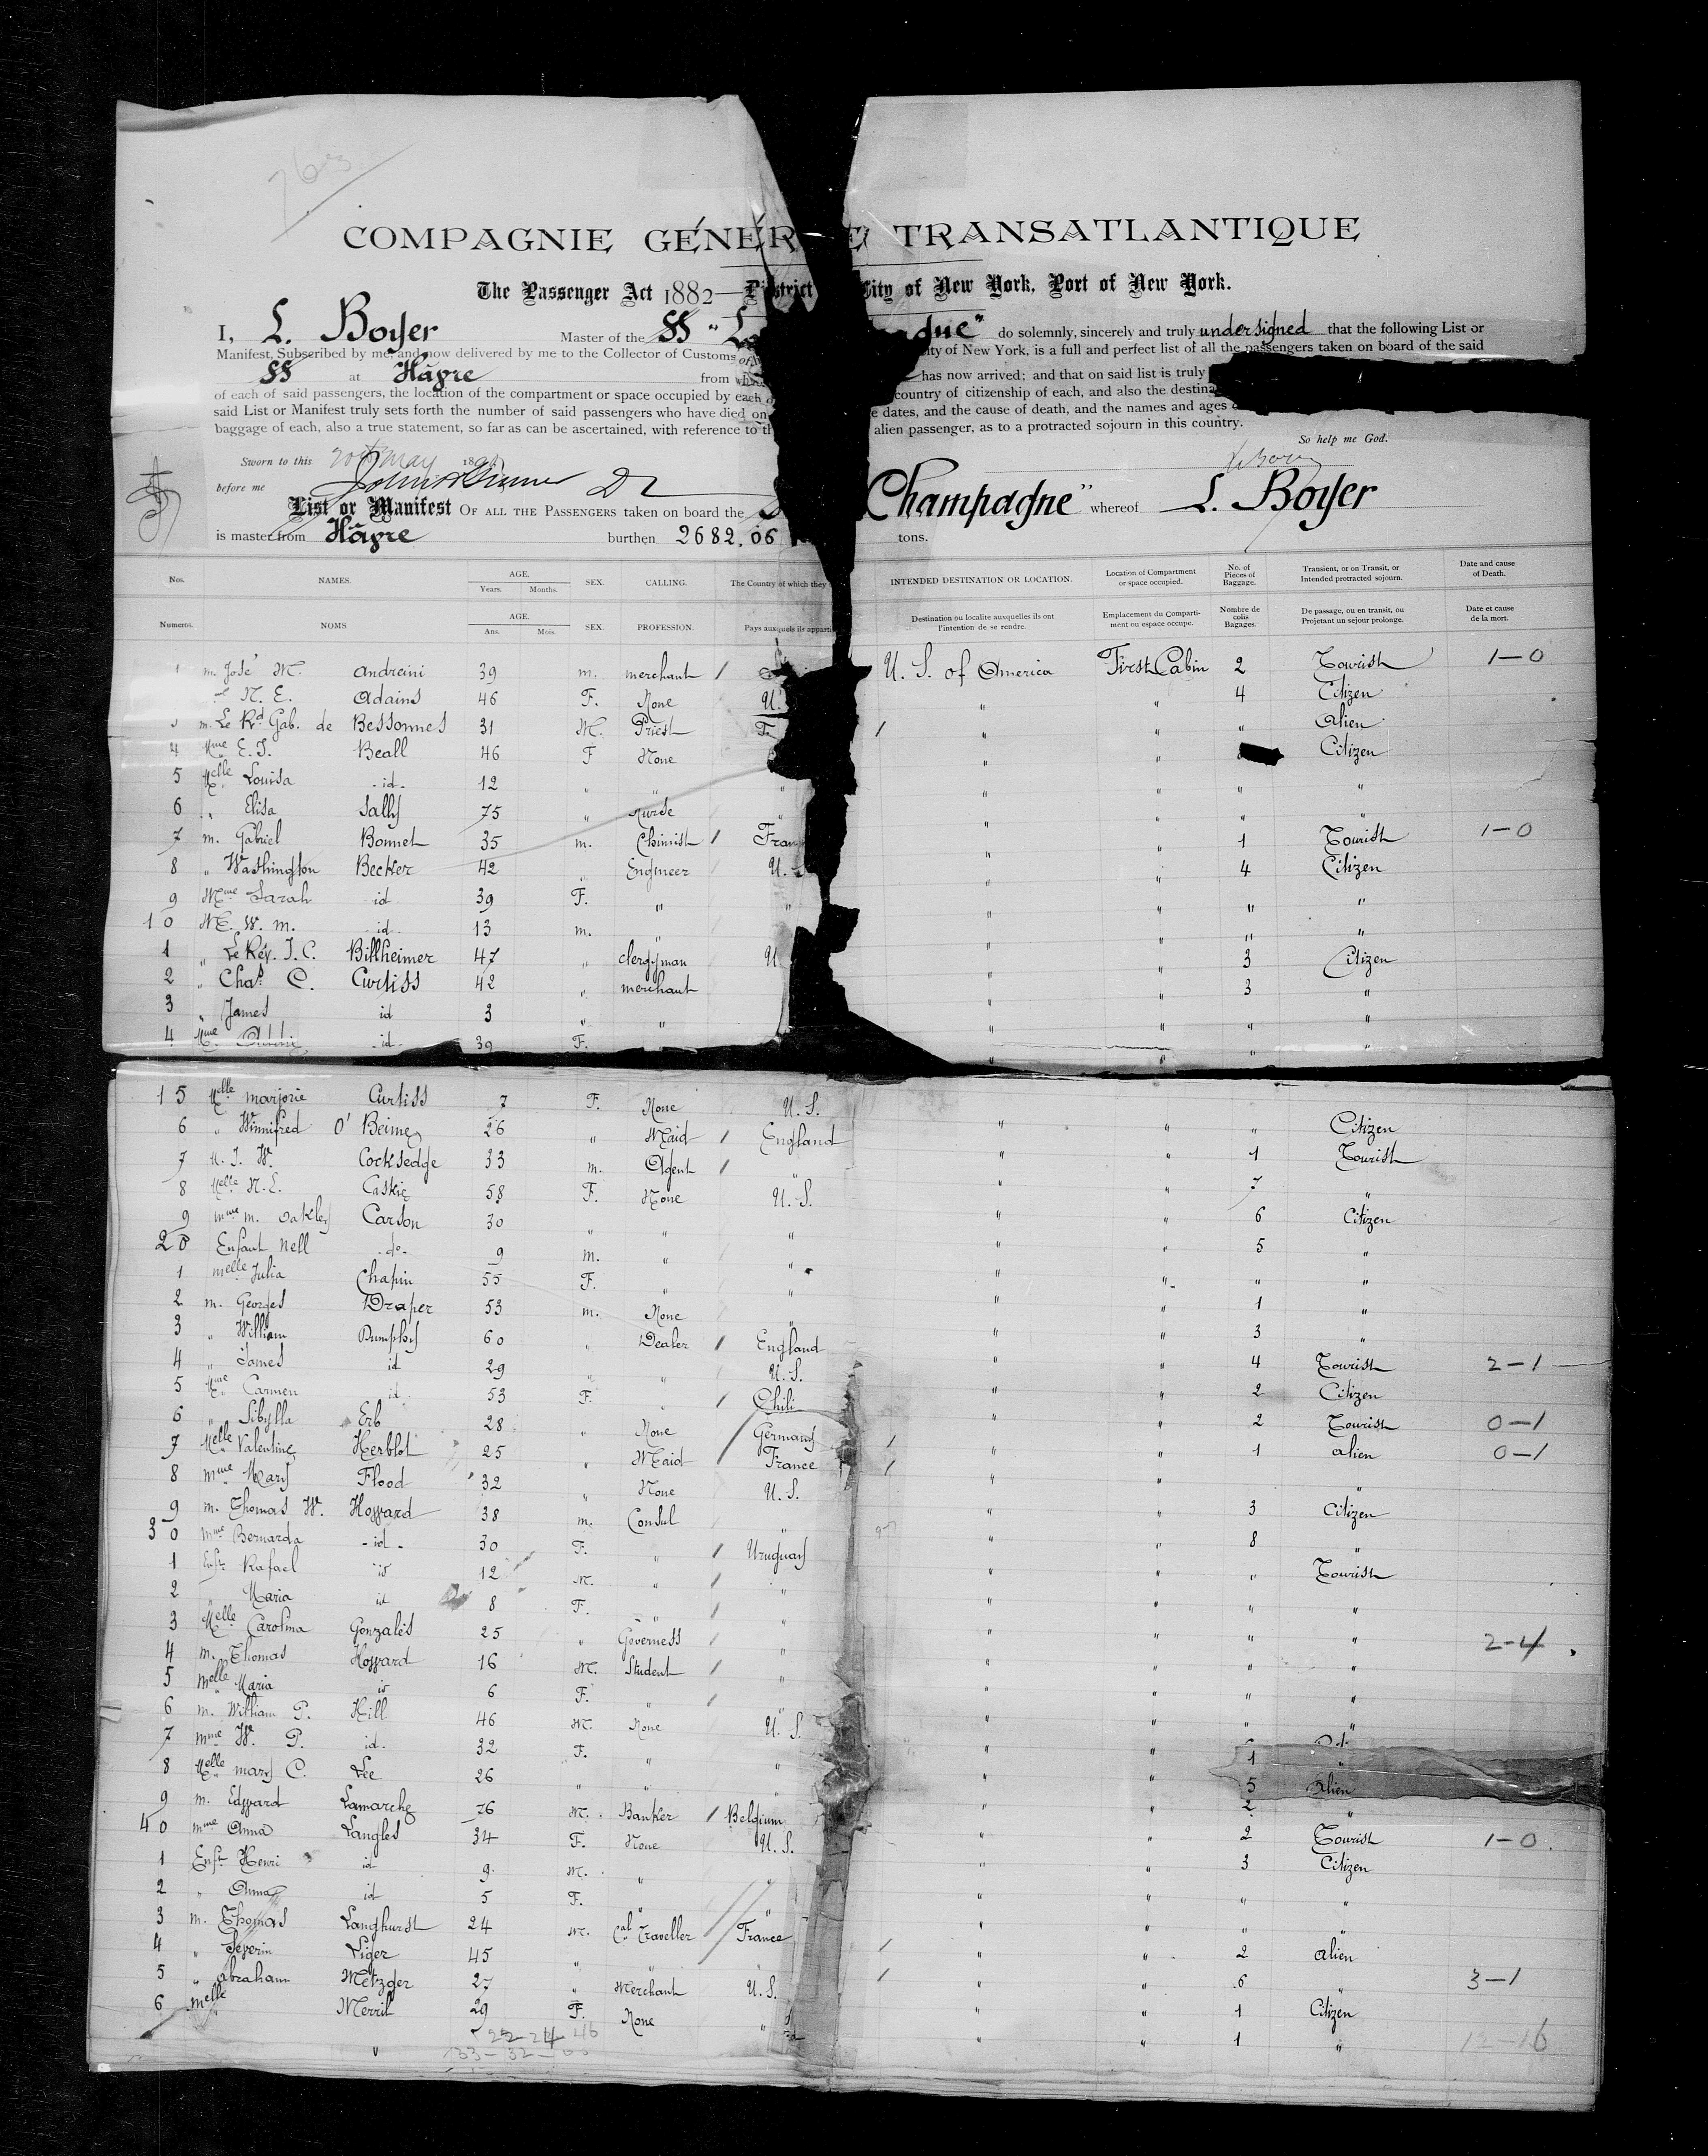 763
COMPAGNIE GÉNÉR E TRANSATLANTIQUE
The Passenger Act 1882 — District City of New York, Port of New York.
I, L. Boyer Master of the SS " La gne" do solemnly, sincerely and truly undersigned that the following List or
Manifest, Subscribed by me, and now delivered by me to the Collector of Customs of City of New York, is a full and perfect list of all the passengers taken on board of the said
SS at Hâvre from has now arrived; and that on said list is truly
of each of said passengers, the location of the compartment or space occupied by each country of citizenship of each, and also the destina
said List or Manifest truly sets forth the number of said passengers who have died on e dates, and the cause of death, and the names and ages
baggage of each, also a true statement, so far as can be ascertained, with reference to th alien passenger, as to a protracted sojourn in this country.
So help me God.
Sworn to this 20th May 189
before me
List or Manifest OF ALL THE PASSENGERS taken on board the Champagne" whereof L. Boyer
is master from Hâvre burthen 2682,06 tons.
Nos. NAMES. AGE. Years. Months. SEX. CALLING. The Country of which they INTENDED DESTINATION OR LOCATION. Location of Compartment or space occupied. No. of Pieces of Baggage. Transient, or on Transit, or Intended protracted sojourn. Date and cause of Death.
Numeros. NOMS AGE. Ans. Mois. SEX. PROFESSION. Pays auxquels ils apparti Destination ou localite auxquelles ils ont l'intention de se rendre. Emplacement du Comparti- ment ou espace occupe. Nombre de colis Bagages. De passage, ou en transit, ou Projetant un sejour prolonge. Date et cause de la mort.
1 m. José M. Andreini 39 m. merchant / U. S. of America First Cabin 2 Tourist 1—0
N. E. Adains 46 F. None U. " " 4 Citizen
m. Le Rd Gab. de Bessonnes 31 M. Priest F / " " " Alien
4 Mme E. J. Beall 46 F None " " Citizen
5 Melle Louisa - id - 12 " " " " " " "
6 " Elisa Sally 75 " Nurse " " " "
7 m. Gabriel Bonnet 35 m. Chimist / Fran " " 1 Tourist 1—0
8 " Washington Becker 42 " Engineer U. " " 4 Citizen
9 Mme Sarah id 39 F. " " " " " "
10 M. W. m. id 13 m. " " " " "
1 " Le Rév. J. C. Billheimer 47 " clergyman U " " 3 Citizen
2 " Chas C. Curtiss 42 " merchant " " 3 "
3 " James id 3 " " " " " "
4 Mme - id - 39 F. " " " "
15 Melle Marjorie Curtiss 7 F. None U. S.
6 " Winnifred O' Beirne 26 " Maid / England " " " Citizen
7 M. J. W. Cocksedge 33 m. Agent / " " " 1 Tourist
8 Melle N. E. Caskie 58 F. None U. S. " " 7 "
9 Mme M. Oakley Carson 30 " " " " " 6 Citizen
20 Enfant Nell - do - 9 m. " " " " 5 "
1 Melle Julia Chapin 55 F. " " " " " "
2 m. Georges Draper 53 m. None " " " 1 "
3 " William Dumphy 60 " Dealer / England " " 3 "
4 " James id 29 " " U. S. " " 4 Tourist 2—1
5 Mme Carmen id 53 F. " / Chili " " 2 Citizen
6 " Sibylla Erb 28 " None / Germany / " " 2 Tourist 0—1
7 Melle Valentine Herblot 25 " Maid / France / " " 1 Alien 0—1
8 Mme Mary Flood 32 " None U. S. " " "
9 m. Thomas W. Howard 38 m. Consul " " " 3 Citizen
30 Mme Bernarda - id - 30 F. " / Uruguay " " 8 "
1 Enft Rafael id 12 M. " / " " " " Tourist
2 " Maria id 8 F. " / " " " " "
3 Melle Carolina Gonzalès 25 " Governess / " " " " " 2-4
4 m. Thomas Howard 16 M. Student / " " " " "
5 Melle Maria id 6 F. " / " " " " "
6 m. William P. Hill 46 M. None U. S. " " " "
7 Mme W. P. id. 32 F. " " " "
8 Melle Mary C. Lee 26 " " " " 1 "
9 m. Edward Lamarche 76 M. Banker / Belgium " " 5 Alien
40 Mme Anna Langles 34 F. None U. S. " " 2 "
1 Enft Henri id 9 M. " " " " 2 Tourist 1—0
2 " Anna id 5 F. " " " " 3 Citizen
3 m. Thomas Langhurst 24 M. Cal Traveller / France " " " "
4 " Severin Liger 45 " " " / " " " "
5 " Abraham Metzger 27 " Merchant U. S. / " " 2 Alien
6 Melle Merril 29 F. None " " " 6 " 3—1
" " 1 Citizen
" " 1 " 12-16
22-24 46
133-32